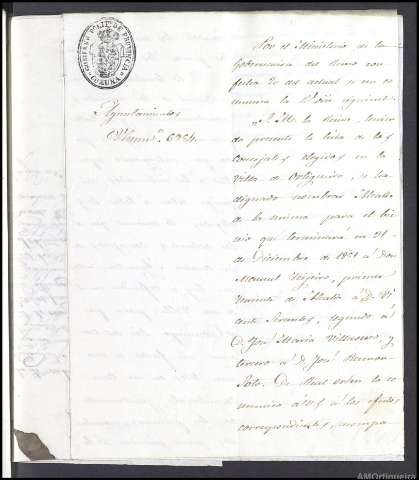 GOBIERNO POLIT.º DE PROVINCIA
CORUÑA
Ayuntamientos
Num.º 6984.
Por el Ministerio de la
Gobernacion del Reino con
fecha 20 del actual se me co
munica la R.l orn siguiente
S. M. la Reina, tenien
do presente la lista de los
Concejales elegidos en la
Villa de Ortigueira, se ha
dignado nombrar Alcalde
de la misma para el bie
nio que terminará en 31
de Diciembre de 1851 á Don
Manuel Teijeiro, primer
teniente de Alcalde á D. Vi
cente Serantes, segundo á
D. José Maria Villanueva, y
tercero á D. José Ramon
Soto. De Real orden lo co
munico á V. S. á los efectos
correspondientes, acompa
AMOrtigueira